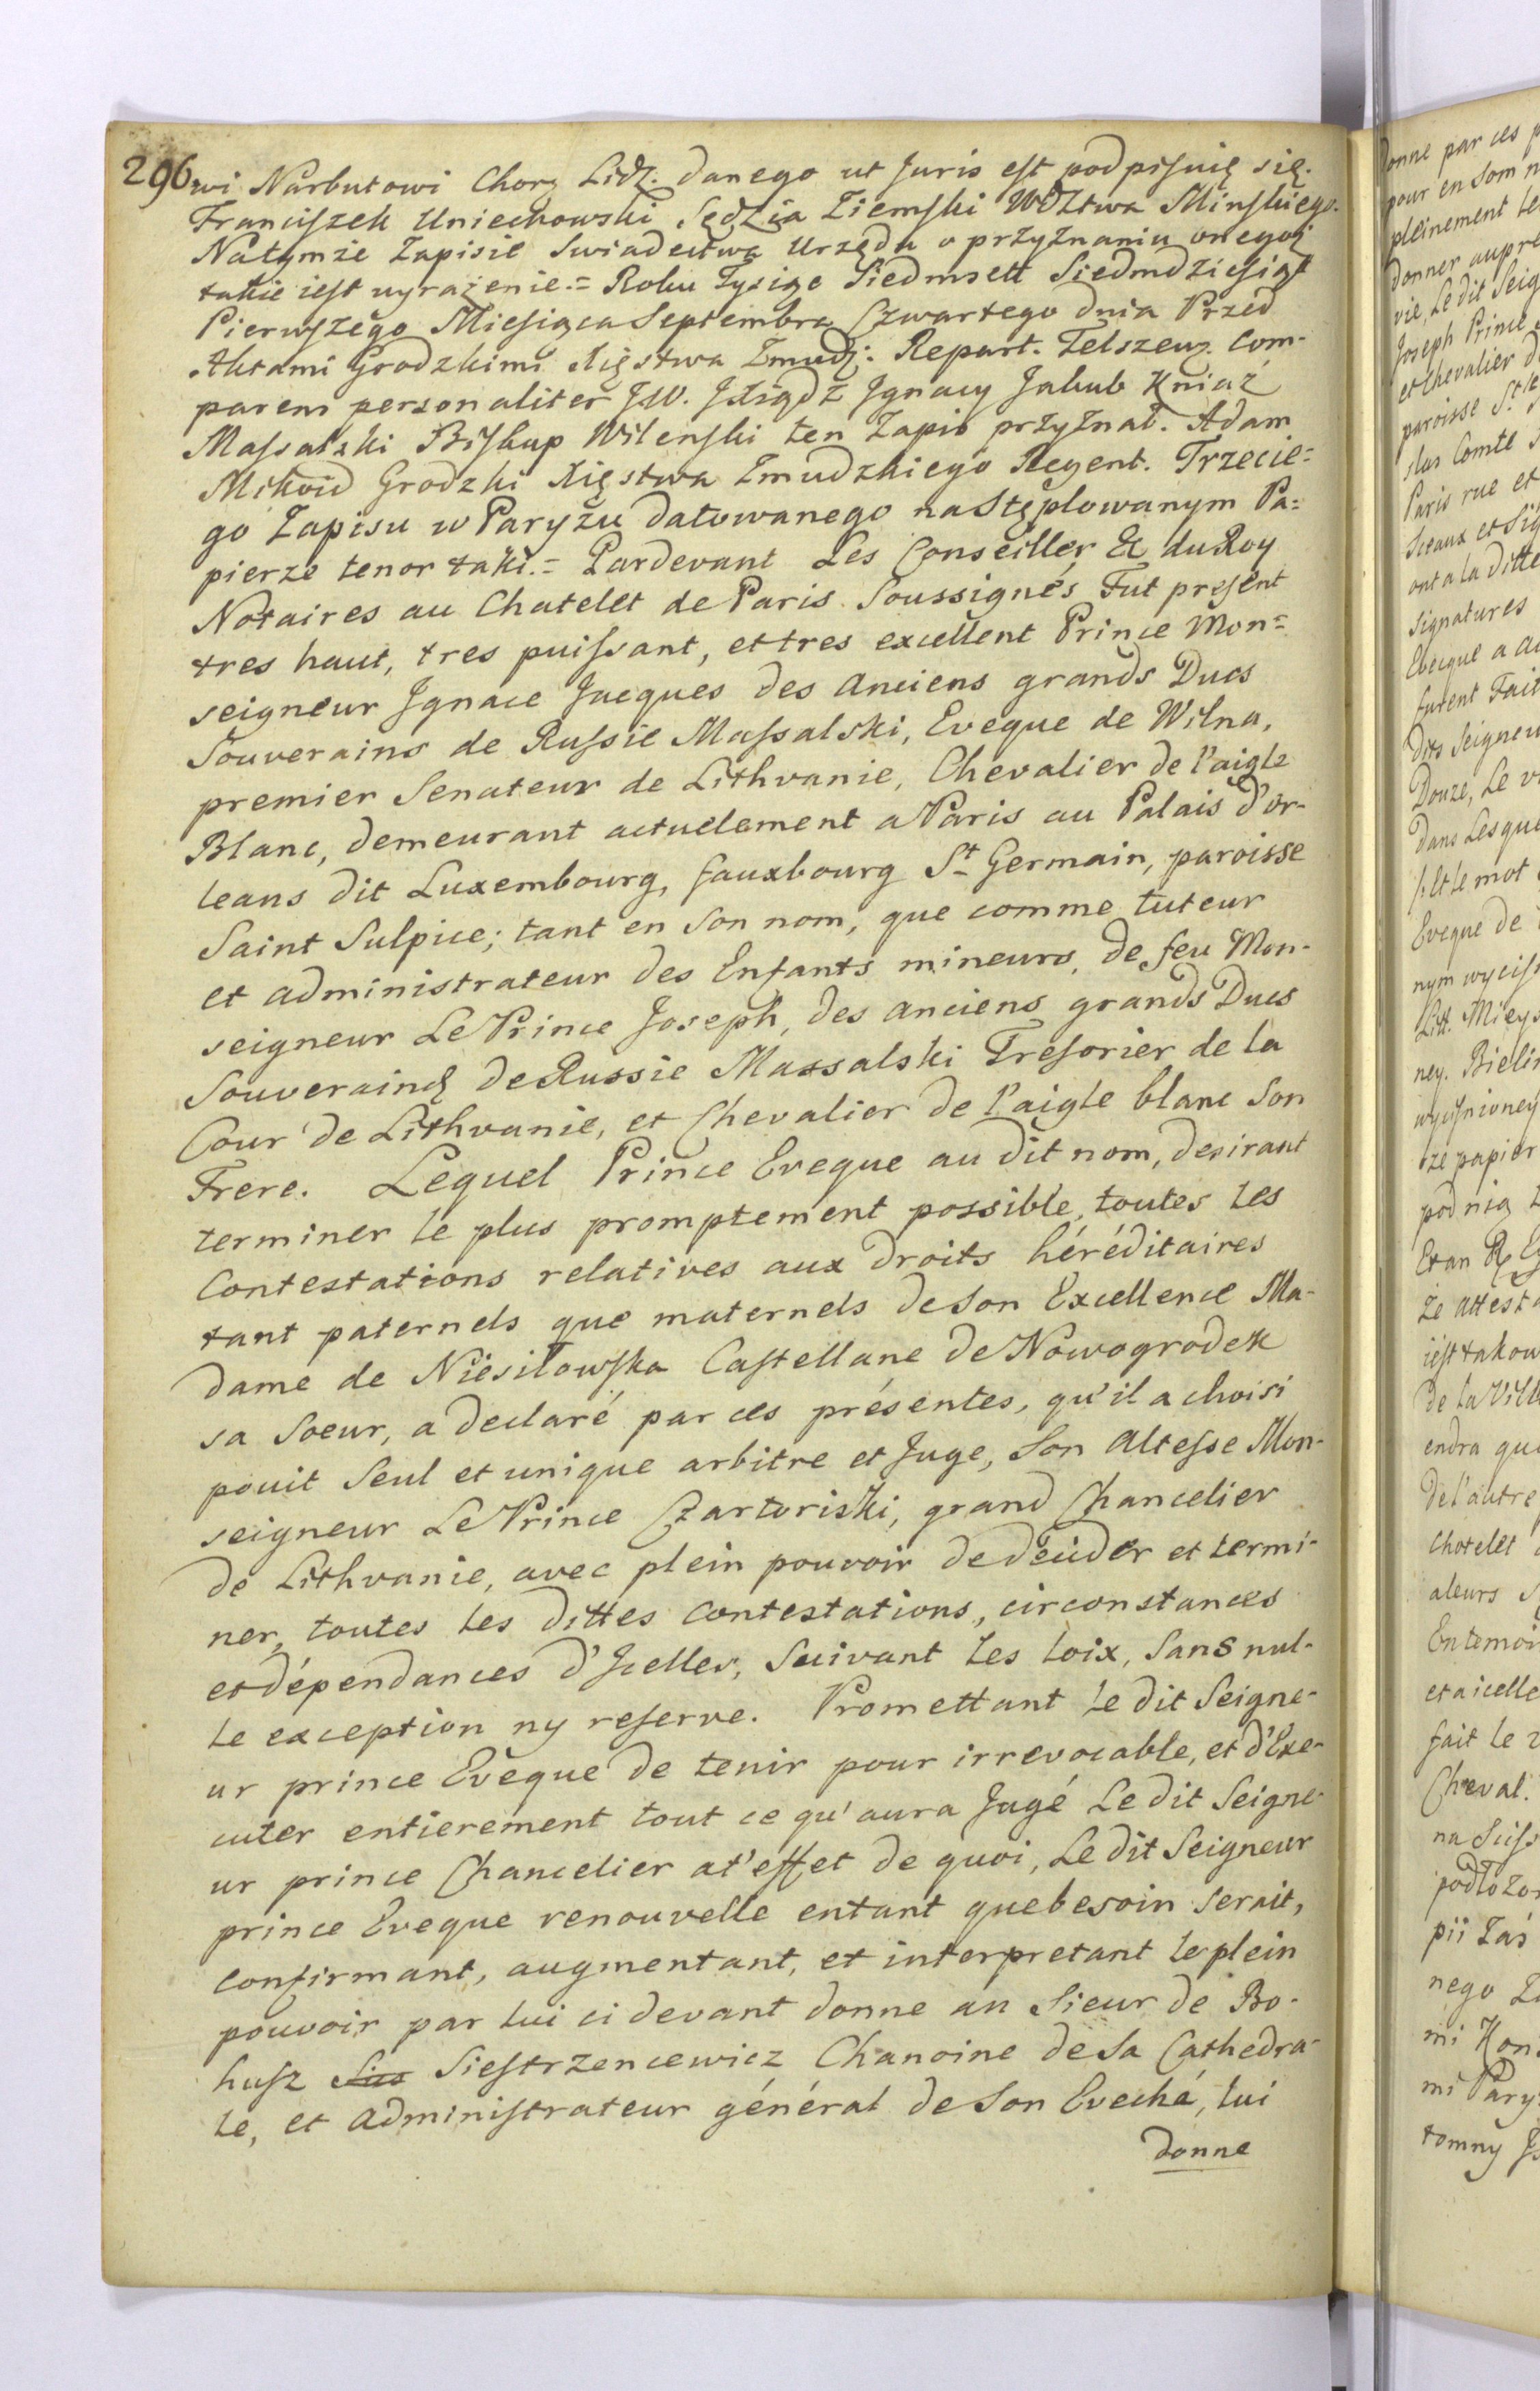 296
wi Narbutowi Chorz Lidz. danego ut Juris est podpisuię się.
Franciszek Uniechowski Sędzia Ziemski Wdztwa Minskiego.
Natymże Zapisie Swiadectwa Urzędu o przyznaniu onegoż
takie iest wyrażenie.= Roku Tysiąc Siedmsett Siedmdziesiąt
Pierwszego Miesiąca Septembra Czwartego dnia Przed
Aktami Grodzkimi Xięstwa Żmudz: Repart. Telszew. Com-
parens personaliter JW. JXiądz Jgnacy Jakub Kniaź
Massalski Biskup Wilenski ten Zapis przyznał. Adam
Mikoid Grodzki Xięstwa Żmudzkiego Regent. Trzecie=
go Zapisu w Paryżu datowanego na Stęplowanym Pa=
pierze tenor taki.= Pardevant Les Conseiller & du Roy
Notaires au Chatelet de Paris Soussignés Fut present
tres haut, tres puissant, et tres excellent Prince Mon=
seigneur Jgnace Jacques des Anciens grands Ducs
Souverains de Russie Massalski, Eveque de Wilna,
premier Senateur de Lithvanie, Chevalier de l'aigle
Blanc, demeurant actuelement a Paris au Palais d'or-
leans dit Luxembourg, fauxbourg St Germain, paroisse
Saint Sulpice; tant en Son nom, que comme tuteur
et administrateur des Enfants mineurs, de feu Mon-
seigneur Le Prince Joseph, des anciens grands Ducs
Souverains de Russie Massalski Tresorier de la
Cour de Lithvanie, et Chevalier de l'aigle blanc Son
Frere. Lequel Prince Eveque au dit nom, desirant
terminer le plus promptement possible, toutes les
Contestations relatives aux droits héréditaires
tant paternels que maternels de Son Excellence Ma-
dame de Niesilowska Castellane de Nowogrodek
sa Soeur, a declaré par ces présentes, qu'il a choisi
pouit Seul et unique arbitre et Juge, Son Altesse Mon-
seigneur Le Prince Czartoriski, grand Chancelier
de Lithvanie, avec plein pouvoir de décider et termi-
ner, toutes les dittes Contestations, circonstances
et dépendances d'Jcelles, Suivant les loix, Sans nul-
le exception ny reserve. Promettant le dit Seigne-
ur prince Evêque de tenir pour irrevocable, et d'Exe-
cuter entierement tout ce qu'aura Jugé Le dit Seigne-
ur prince Chancelier at'effet de quoi, Le dit Seigneur
prince Eveque renouvelle entant que besoin Serait,
confirmant, augmentant, et interpretant le plein
pouvoir par lui ci devant donne au Sieur de Bo-
husz Siestrzencewicz Chanoine de Sa Cathedra-
le, et Administrateur général de Son Eveché, lui
donne
donne par ces
pour en Som
pleinement
donner
vie, Le dit
Joseph Prince
et Chevalier
paroisse St
slas Comte
Paris rue et
Sceaux et
ont a la ditte
Signatures
Eveque a
furent Fait
dits Seigneu
Douze, Le
dans Lesque
Et le mot
Eveque de
nym
Litt.
ney.
ze papier
pod nią
Ze
iest takow
de la Vill
endra
de l'autre
Chatelet
aleurs
En temoi
et a icelle
fait le
Cheval.
na
podłożo
pii Zaś
nego
mi
mi Pary
tomny